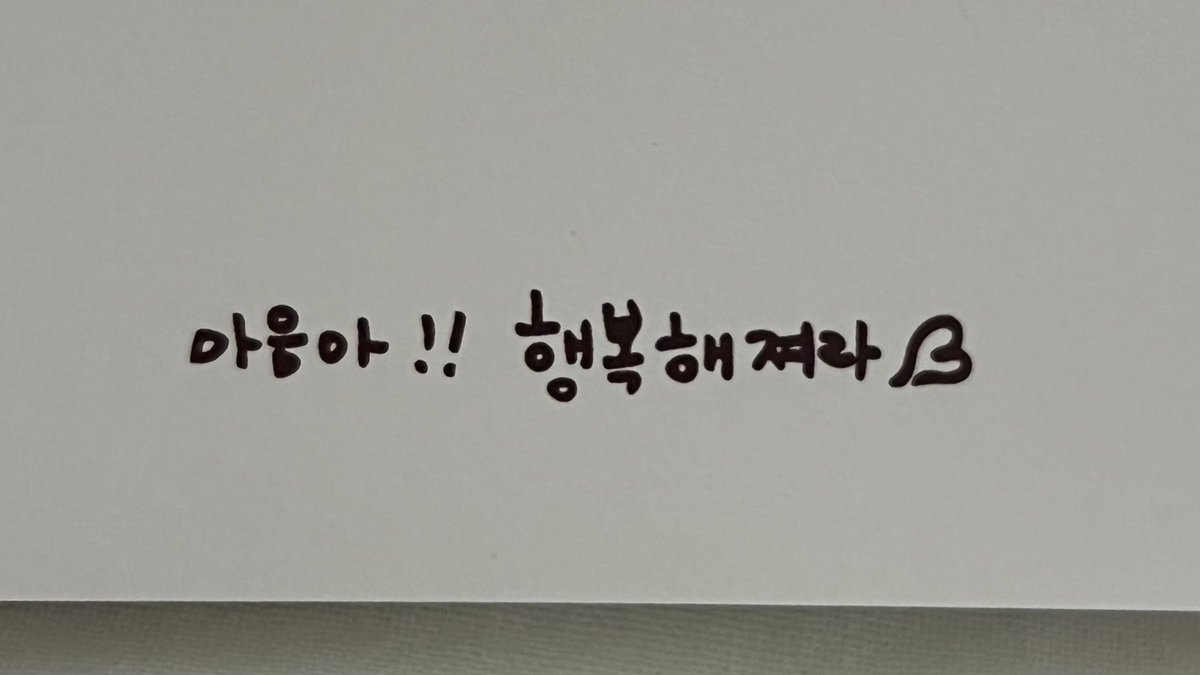 마음아!! 행복해져라♡